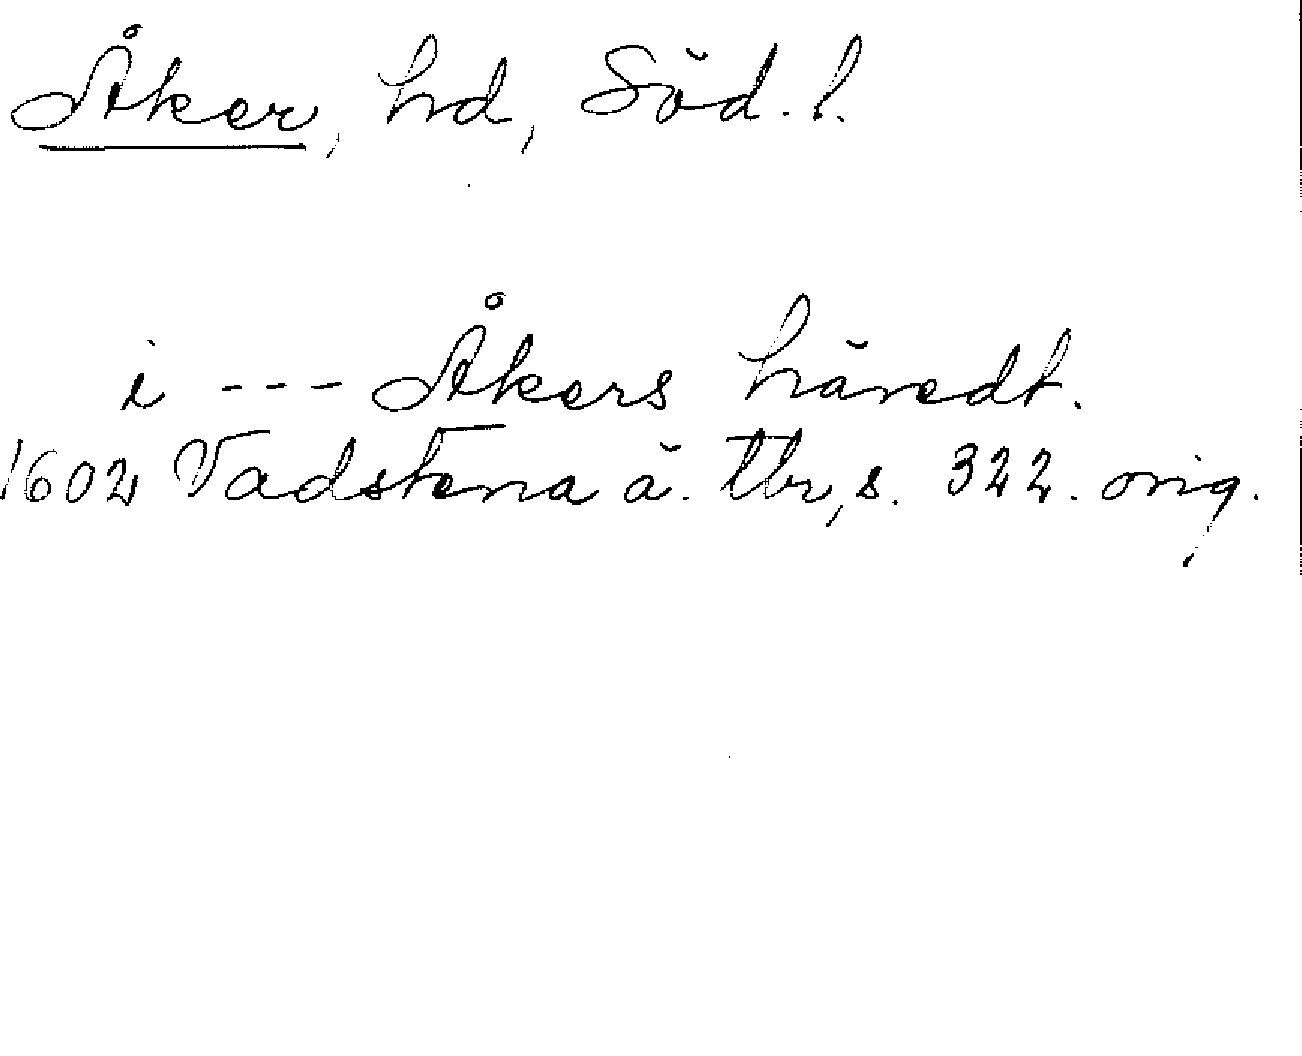 Åker, hd, Söd. l.
i --- Åkers häredt.
1602 Vadstena ä. tbr, s. 322. orig.